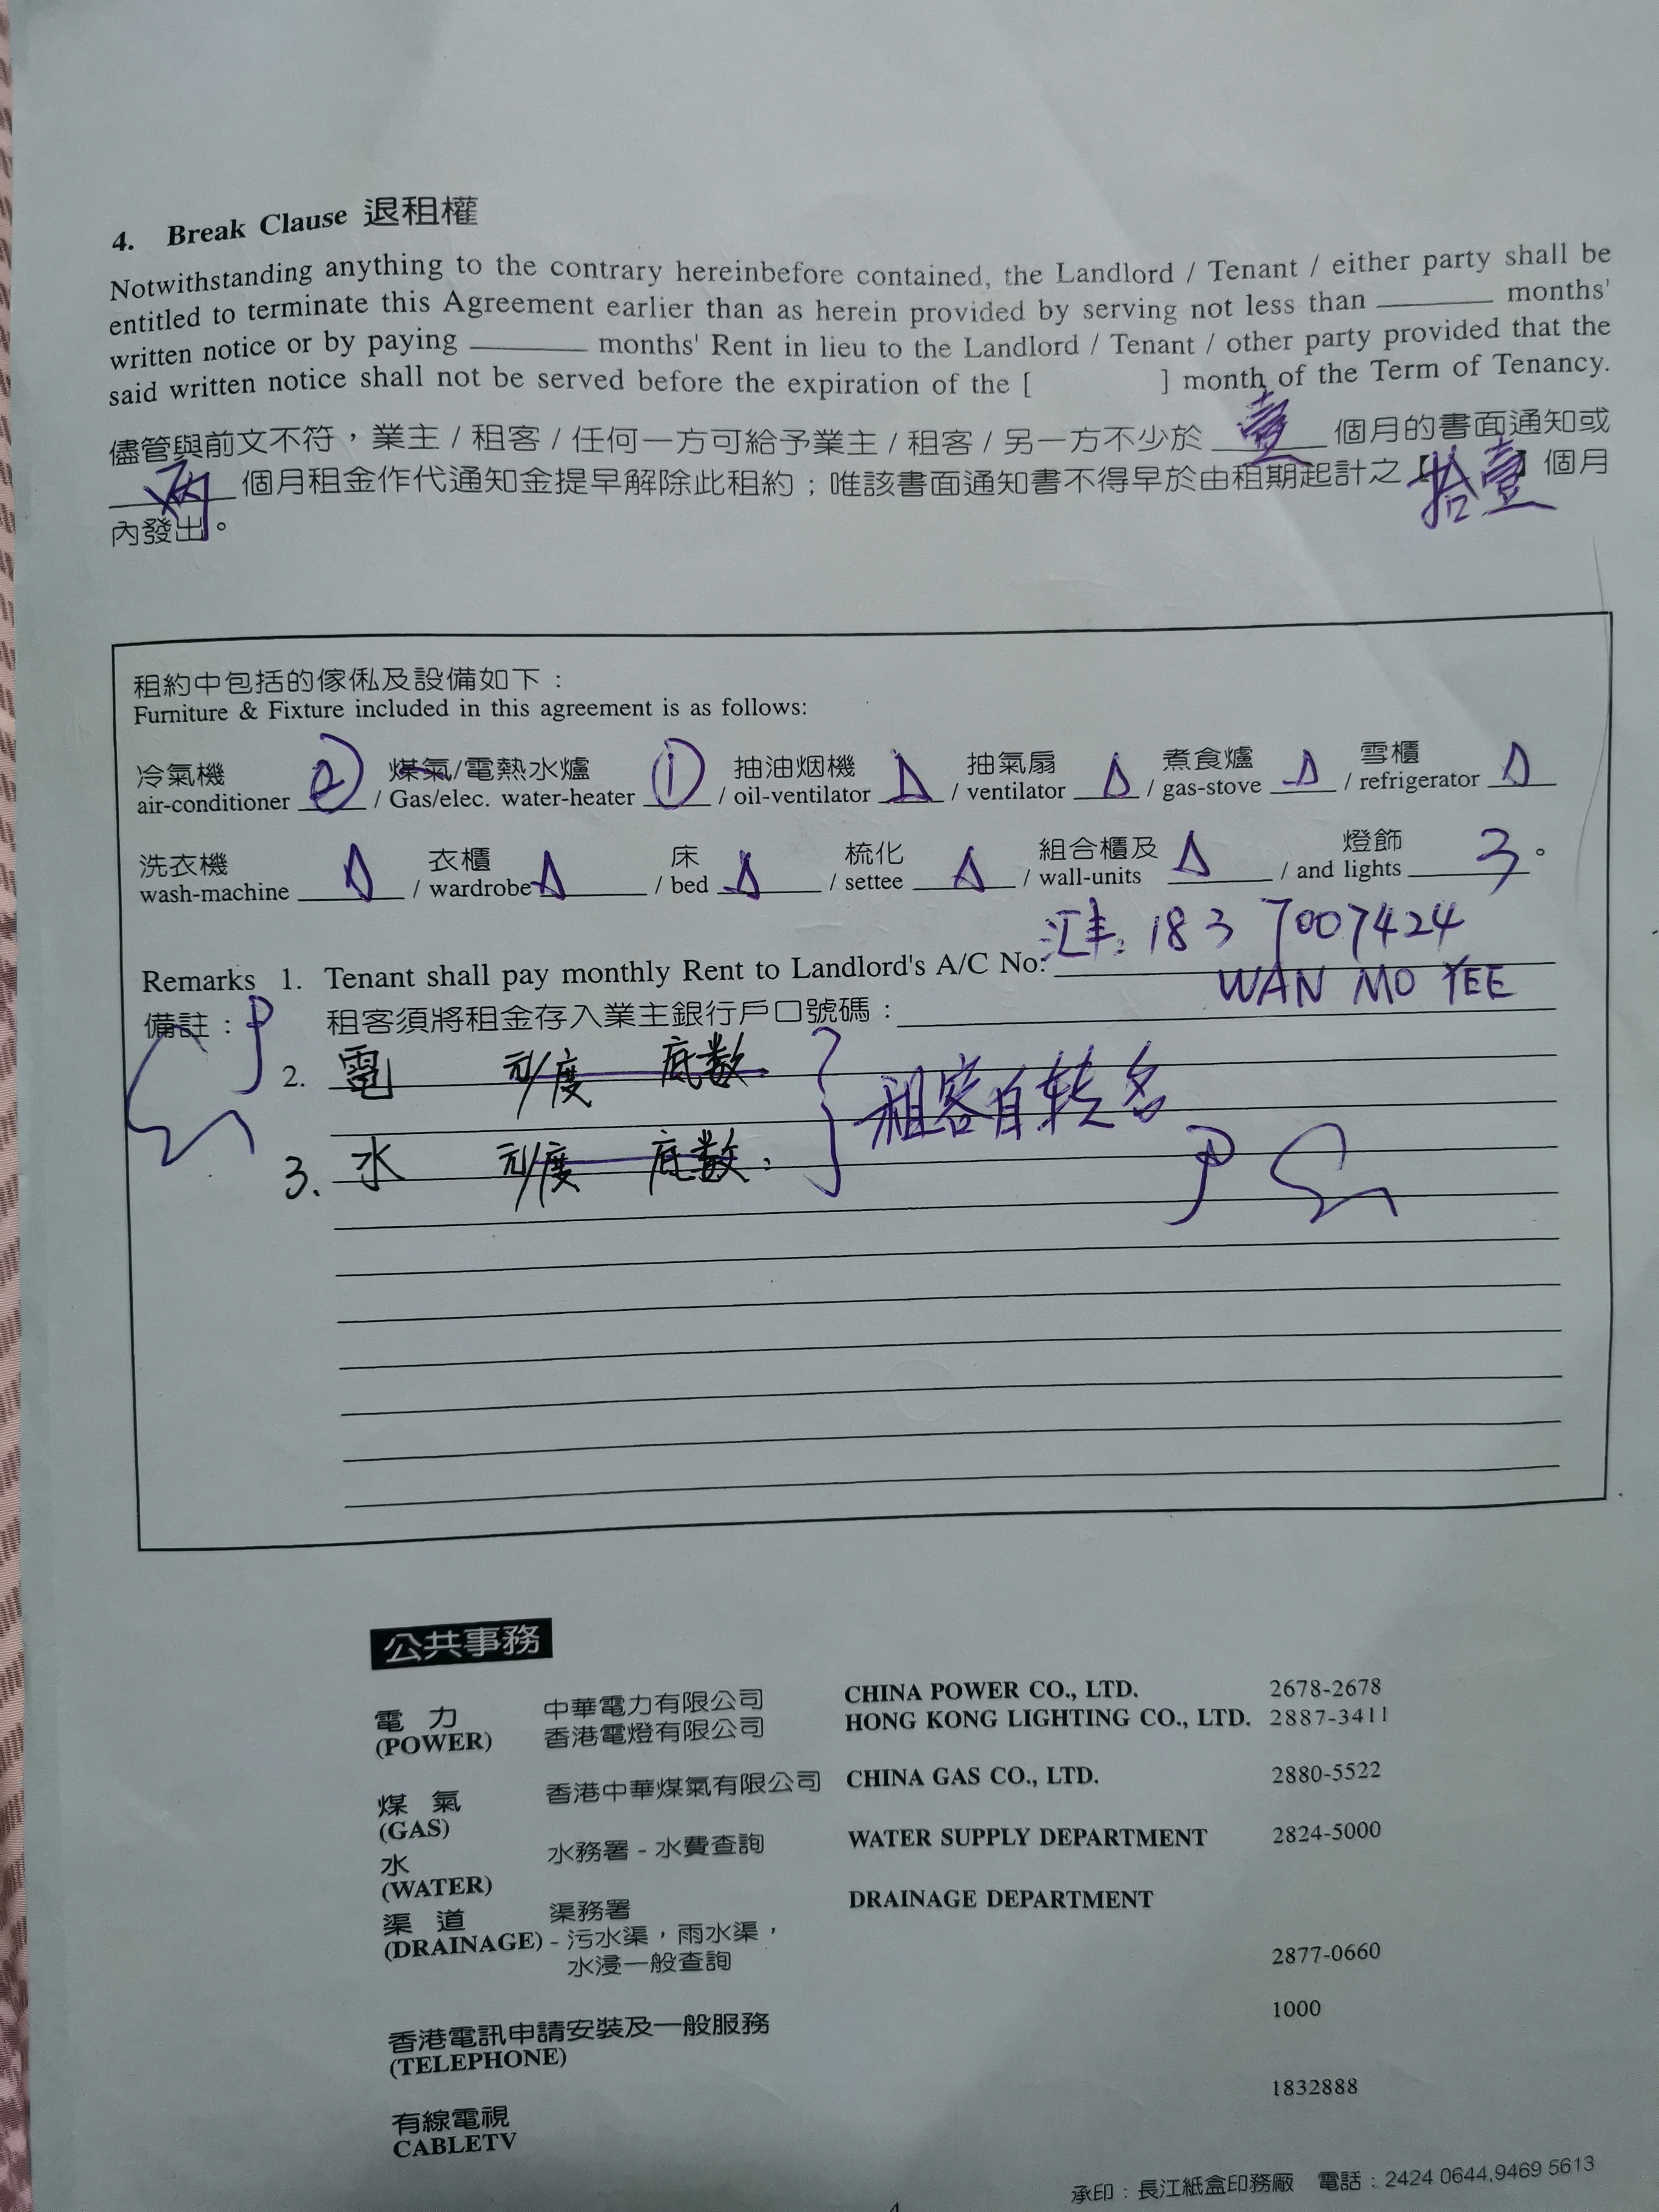 4. Break Clause 退租權
Notwithstanding anything to the contrary hereinbefore contained, the Landlord / Tenant / either party shall be
entitled to terminate this Agreement earlier than as herein provided by serving not less than ______ months'
written notice or by paying ______ months' Rent in lieu to the Landlord / Tenant / other party provided that the
said written notice shall not be served before the expiration of the [ ] month of the Term of Tenancy.
儘管與前文不符，業主 / 租客 / 任何一方可給予業主 / 租客 / 另一方不少於 壹 個月的書面通知或
兩 個月租金作代通知金提早解除此租約；唯該書面通知書不得早於由租期起計之【拾壹】個月
內發出。
租約中包括的傢俬及設備如下：
Furniture & Fixture included in this agreement is as follows:
冷氣機 ② 煤氣/電熱水爐 ① 抽油烟機 抽氣扇 煮食爐 雪櫃
air-conditioner / Gas/elec. water-heater / oil-ventilator / ventilator / gas-stove / refrigerator
洗衣機 衣櫃 床 梳化 組合櫃及 燈飾 3。
wash-machine / wardrobe / bed / settee / wall-units / and lights
汇丰: 183 7007424
Remarks 1. Tenant shall pay monthly Rent to Landlord's A/C No:
WAN MO YEE
備註： 租客須將租金存入業主銀行戶口號碼：
2. 電 度 底数.
租客自转名
3. 水 度 底数:
公共事務
電 力 中華電力有限公司 CHINA POWER CO., LTD. 2678-2678
(POWER) 香港電燈有限公司 HONG KONG LIGHTING CO., LTD. 2887-3411
煤 氣 香港中華煤氣有限公司 CHINA GAS CO., LTD. 2880-5522
(GAS)
水 水務署 - 水費查詢 WATER SUPPLY DEPARTMENT 2824-5000
(WATER)
渠 道 渠務署 DRAINAGE DEPARTMENT
(DRAINAGE) - 污水渠，雨水渠，
水浸一般查詢 2877-0660
香港電訊申請安裝及一般服務 1000
(TELEPHONE)
有線電視 1832888
CABLETV
承印：長江紙盒印務廠 電話：2424 0644,9469 5613